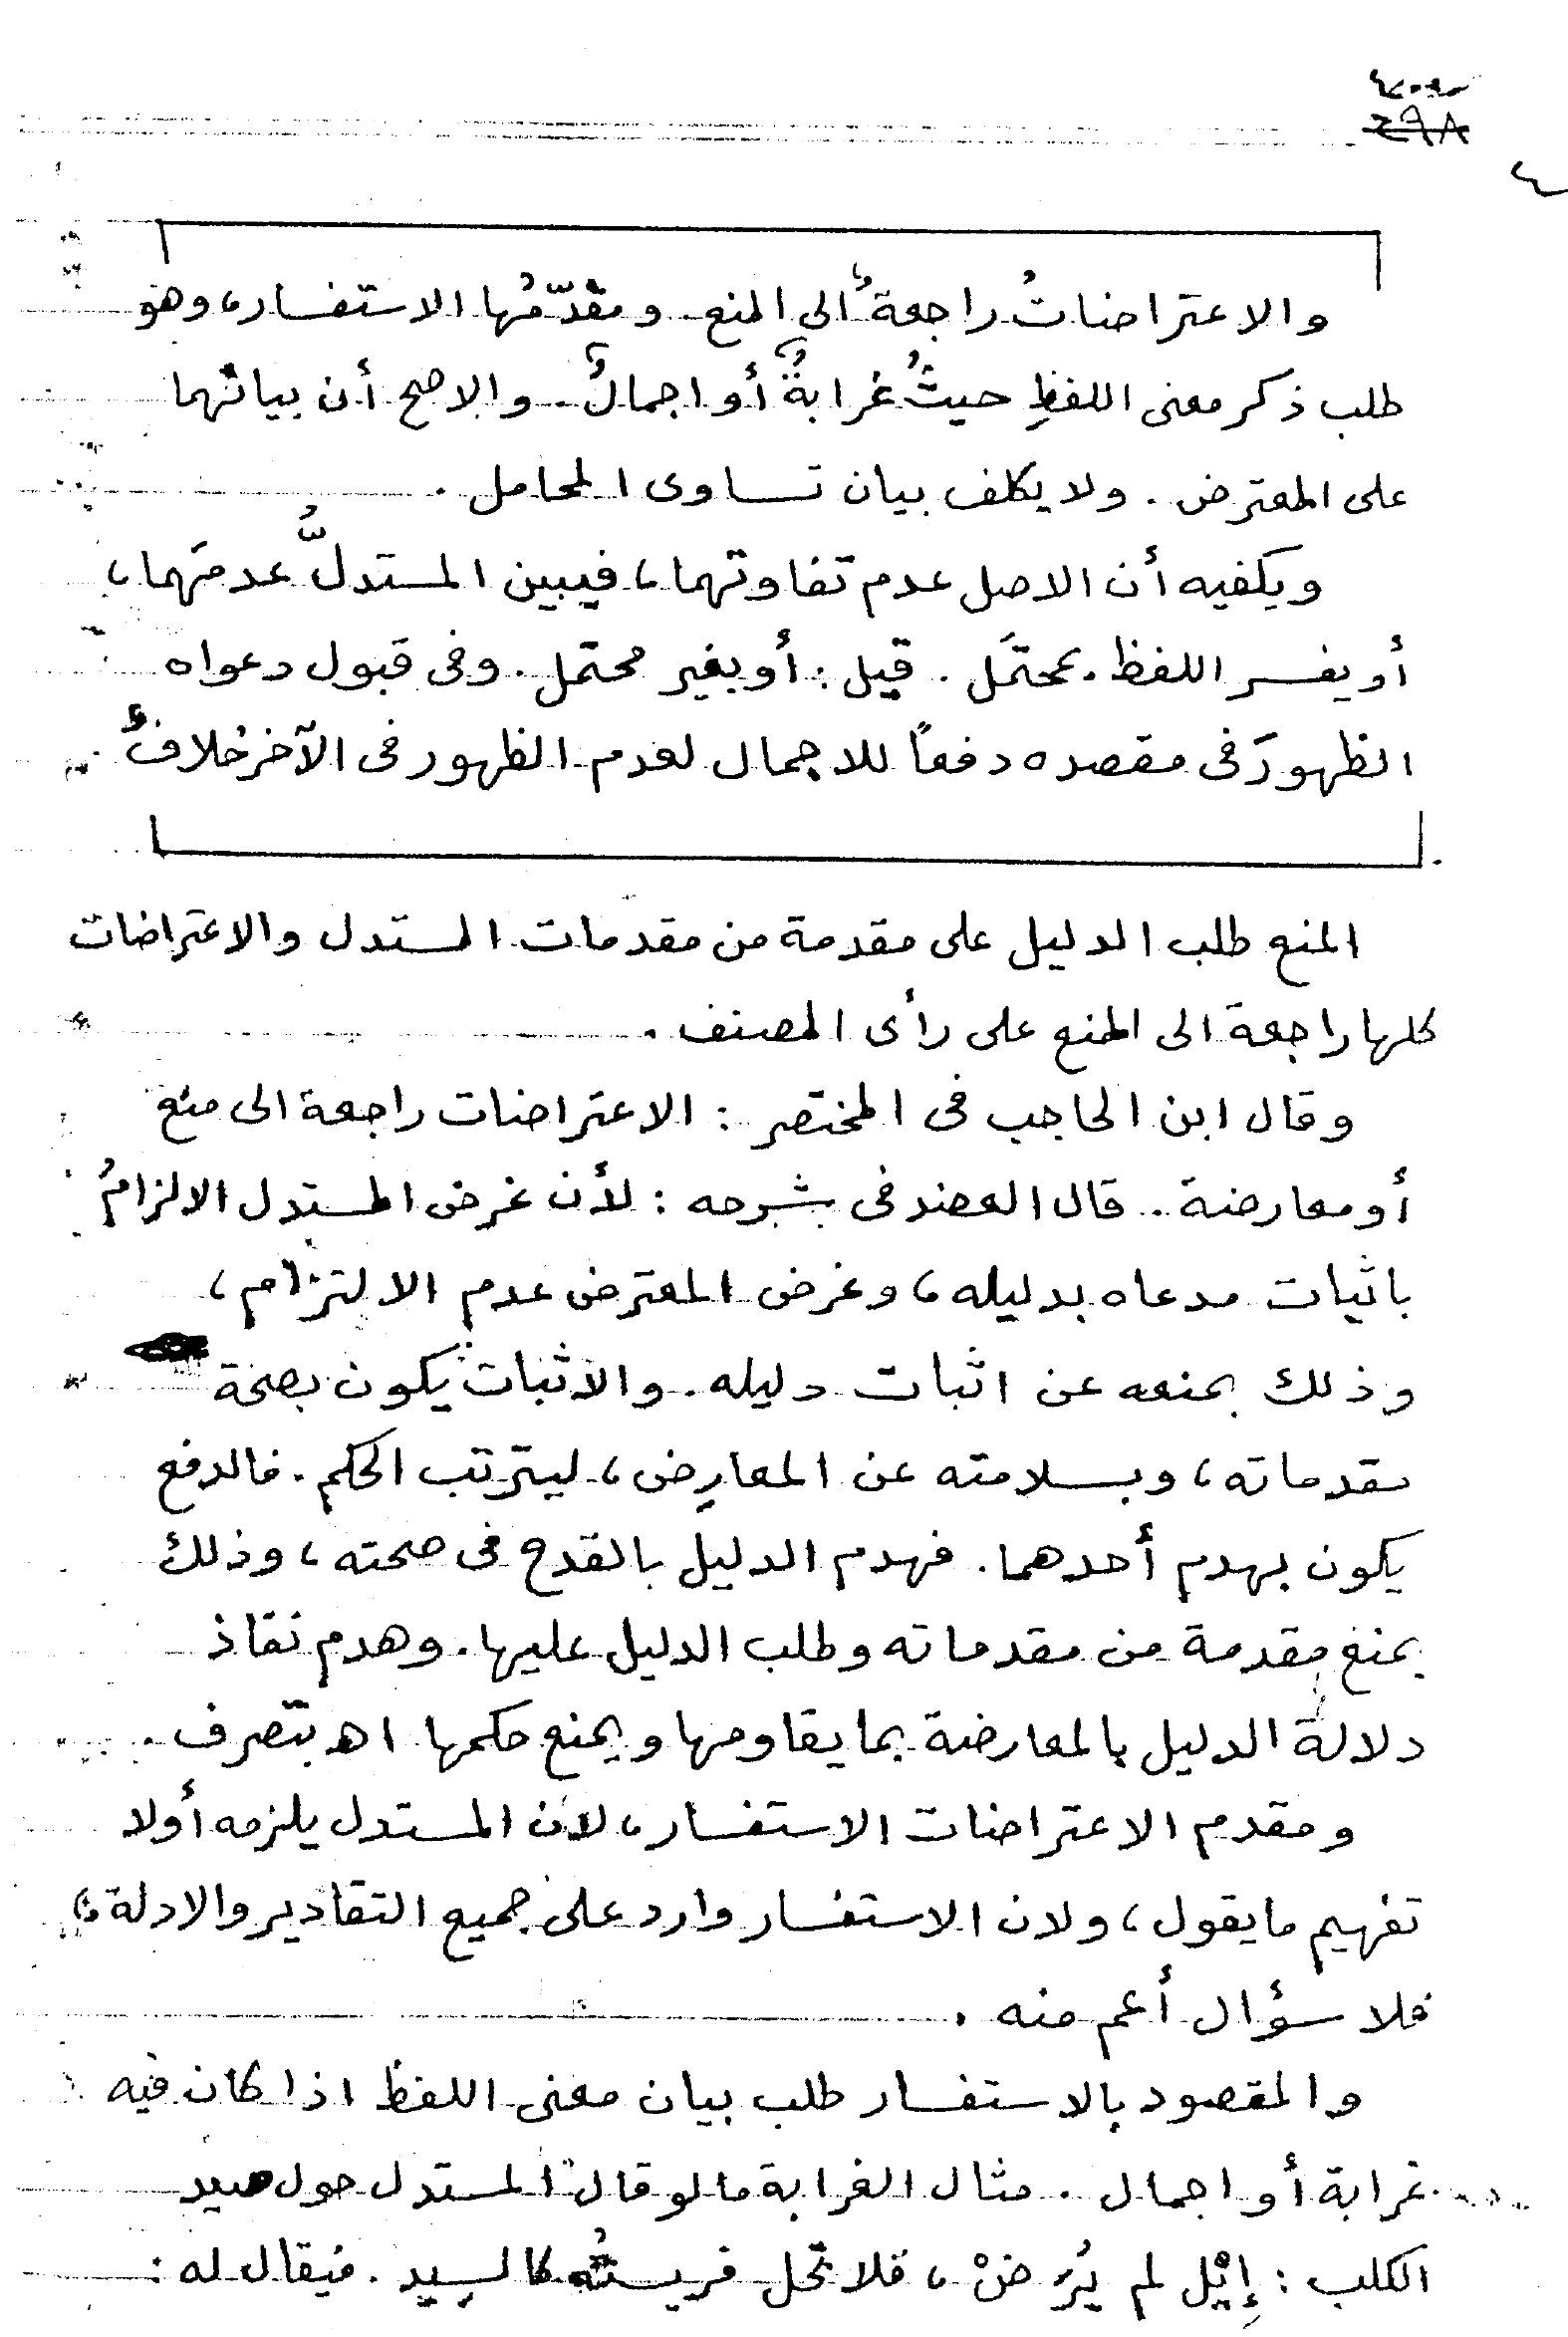 ٤٩٨
والاعتراضاتُ راجعةٌ الى المنع. ومقدّمُها الاستفسار، وهو
طلب ذكر معنى اللفظِ حيثُ غرابةٌ أو اجمالٌ. والاصح أن بيانهما
على المعترض. ولا يكلف بيان تساوى المحامل.
ويكفيه أن الاصل عدم تفاوتهما، فيبين المستدلُّ عدمَهما،
أو يفسر اللفظ بمحتمَل. قيل: أو بغير محتمل. وفى قبول دعواه
الظهورَ فى مقصده دفعاً للاجمال لعدم الظهور فى الآخر خلافٌ
.
المنع طلب الدليل على مقدمة من مقدمات المستدل والاعتراضات
كلها راجعة الى المنع على رأى المصنف.
وقال ابن الحاجب فى المختصر: الاعتراضات راجعة الى منع
أو معارضة. قال العضد فى شرحه: لأن غرض المستدل الالزامُ
باثبات مدعاه بدليله، وغرض المعترض عدم الالتزام،
وذلك بمنعه عن اثبات دليله. والاثبات يكون بصحة
مقدماته، وبسلامته عن المعارِض، ليترتب الحكم. فالدفع
يكون بهدم أحدهما. فهدم الدليل بالقدح فى صحته، وذلك
بمنع مقدمة من مقدماته وطلب الدليل عليها. وهدم نفاذ
دلالة الدليل بالمعارضة بما يقاومها ويمنع حكمها اهـ بتصرف.
ومقدم الاعتراضات الاستفسار، لأن المستدل يلزمه أولا
تفهيم ما يقول، ولان الاستفسار وارد على جميع التقادير والادلة،
فلا سؤال أعم منه.
والمقصود بالاستفسار طلب بيان معنى اللفظ اذا كان فيه
غرابة أو اجمال. مثال الغرابة ما لو قال المستدل حول صيد
الكلب: إيّل لم يُرَضْ، فلا تحل فريستُه كالسِيد. فيقال له: